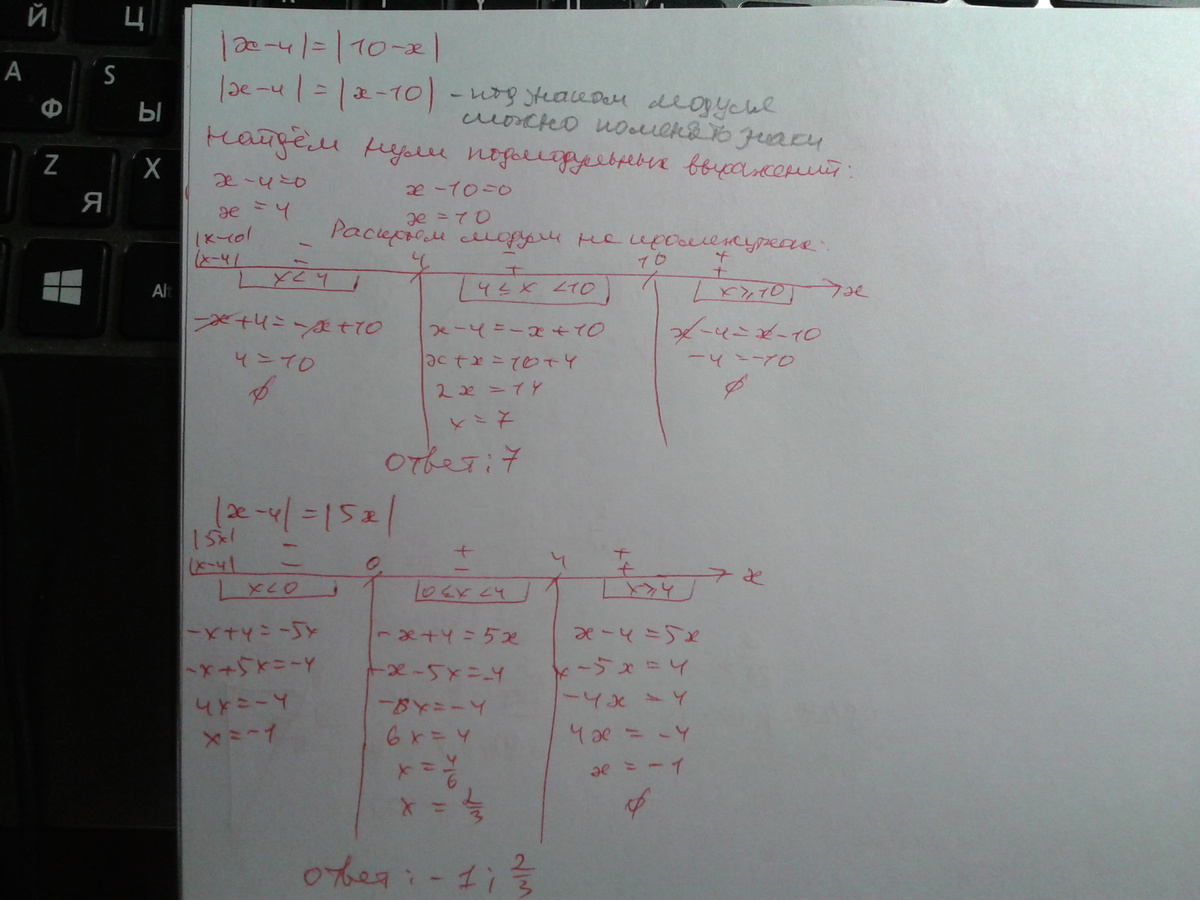 Й Ц
А Ф S Ы
Z Я X
Alt
|x-4|=|10-x|
|x-4|=|x-10| - под знаком модуля
можно поменять знаки
Найдём нули подмодульных выражений:
x-4=0 x-10=0
x=4 x=10
Раскроем модули на промежутках:
|x-10| - - +
|x-4| - 4 + 10 + x
x<4 4≤x<10 x≥10
-x+4=-x+10 x-4=-x+10 x-4=x-10
4=10 x+x=10+4 -4=-10
∅ 2x=14 ∅
x=7
Ответ: 7
|x-4|=|5x|
|5x| - + +
|x-4| - 0 - 4 + x
x<0 0≤x<4 x≥4
-x+4=-5x -x+4=5x x-4=5x
-x+5x=-4 -x-5x=-4 x-5x=4
4x=-4 -6x=-4 -4x=4
x=-1 6x=4 4x=-4
x=4/6 x=-1
x=2/3 ∅
Ответ: -1; 2/3